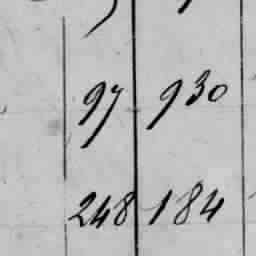 97 930
248 184